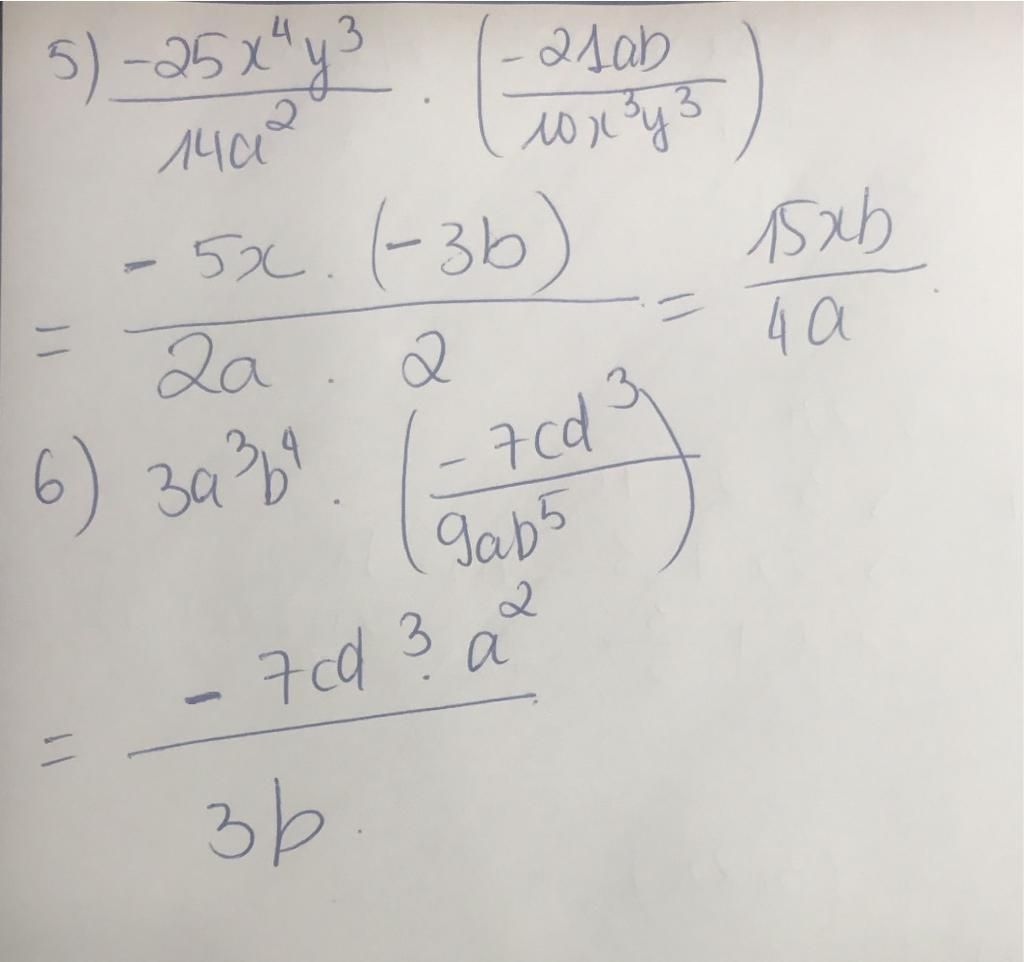 5) \frac{-25x^4y^3}{14a^2} . \left(\frac{-21ab}{10x^3y^3}\right)
= \frac{-5x . (-3b)}{2a . 2} = \frac{15xb}{4a} .
6) 3a^3b^4 . \left(\frac{-7cd^3}{9ab^5}\right)
= \frac{-7cd^3 . a^2}{3b} .